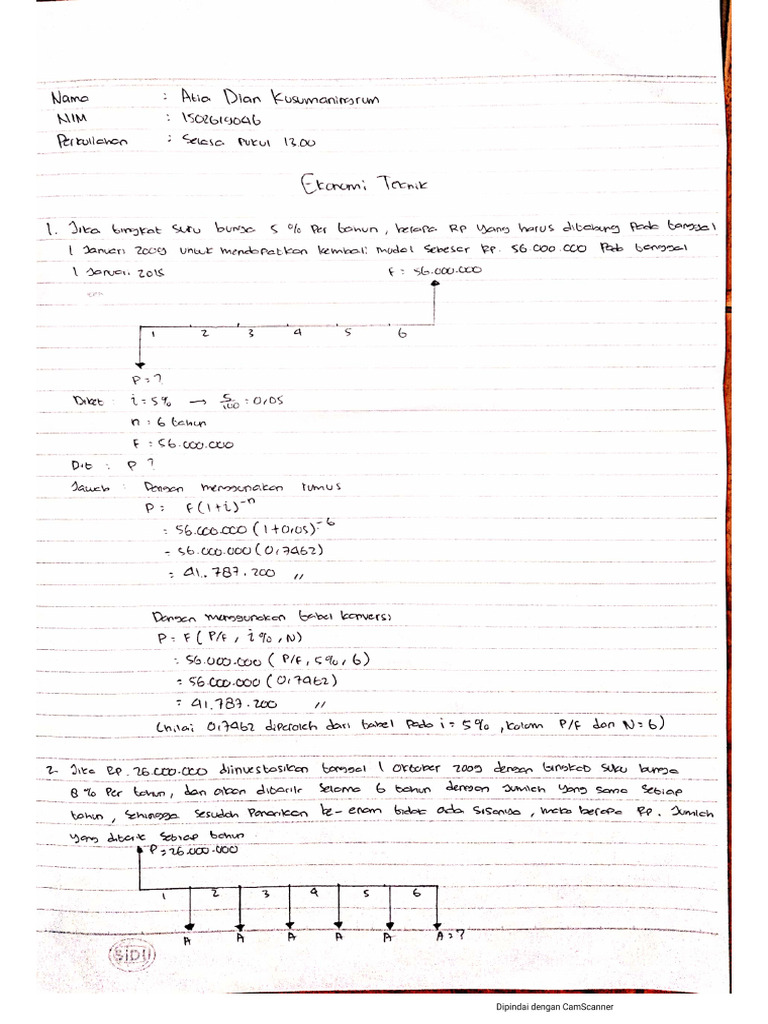 Nama : Atia Dian Kusumaningrum
NIM : 1502619046
Perkuliahan : Selasa Pukul 13.00
Ekonomi Teknik
1. Jika tingkat suku bunga 5 % Per tahun, berapa RP yang harus ditabung Pada tanggal
1 Januari 2009 untuk mendapatkan kembali modal sebesar RP. 56.000.000 Pada tanggal
1 Januari 2015
F = 56.000.000
1 2 3 4 5 6
P = ?
Diket : i = 5% → 5/100 = 0,05
n = 6 tahun
F = 56.000.000
Dit : P ?
Jawab : Dengan menggunakan rumus
P = F(1+i)⁻ⁿ
= 56.000.000 (1+0,05)⁻⁶
= 56.000.000 (0,7462)
= 41.787.200 //
Dengan menggunakan tabel konversi
P = F ( P/F , i % , N)
= 56.000.000 ( P/F , 5% , 6)
= 56.000.000 ( 0,7462)
= 41.787.200 //
(nilai 0,7462 diperoleh dari tabel pada i = 5% , kolom P/F dan N = 6)
2. Jika RP. 26.000.000 diinvestasikan tanggal 1 Oktober 2009 dengan tingkat suku bunga
8 % Per tahun, dan akan ditarik selama 6 tahun dengan jumlah yang sama setiap
tahun, sehingga sesudah Penarikan ke-enam tidak ada sisanya, maka berapa RP. Jumlah
yang ditarik setiap tahun
P = 26.000.000
1 2 3 4 5 6
A A A A A A = ?
SIDU
Dipindai dengan CamScanner